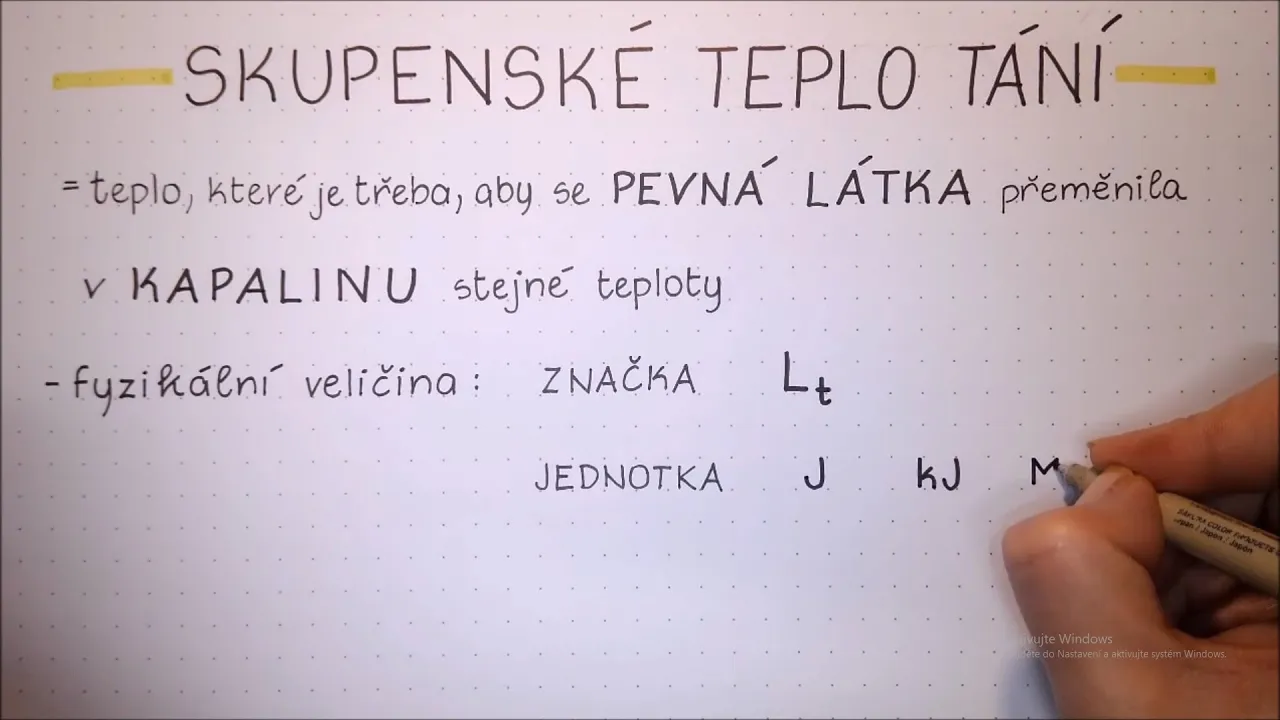 SKUPENSKÉ TEPLO TÁNÍ
= teplo, které je třeba, aby se PEVNÁ LÁTKA přeměnila
v KAPALINU stejné teploty
- fyzikální veličina: ZNAČKA Lt
JEDNOTKA J kJ M
ivujte Windows
do Nastavení a aktivujte systém Windows.